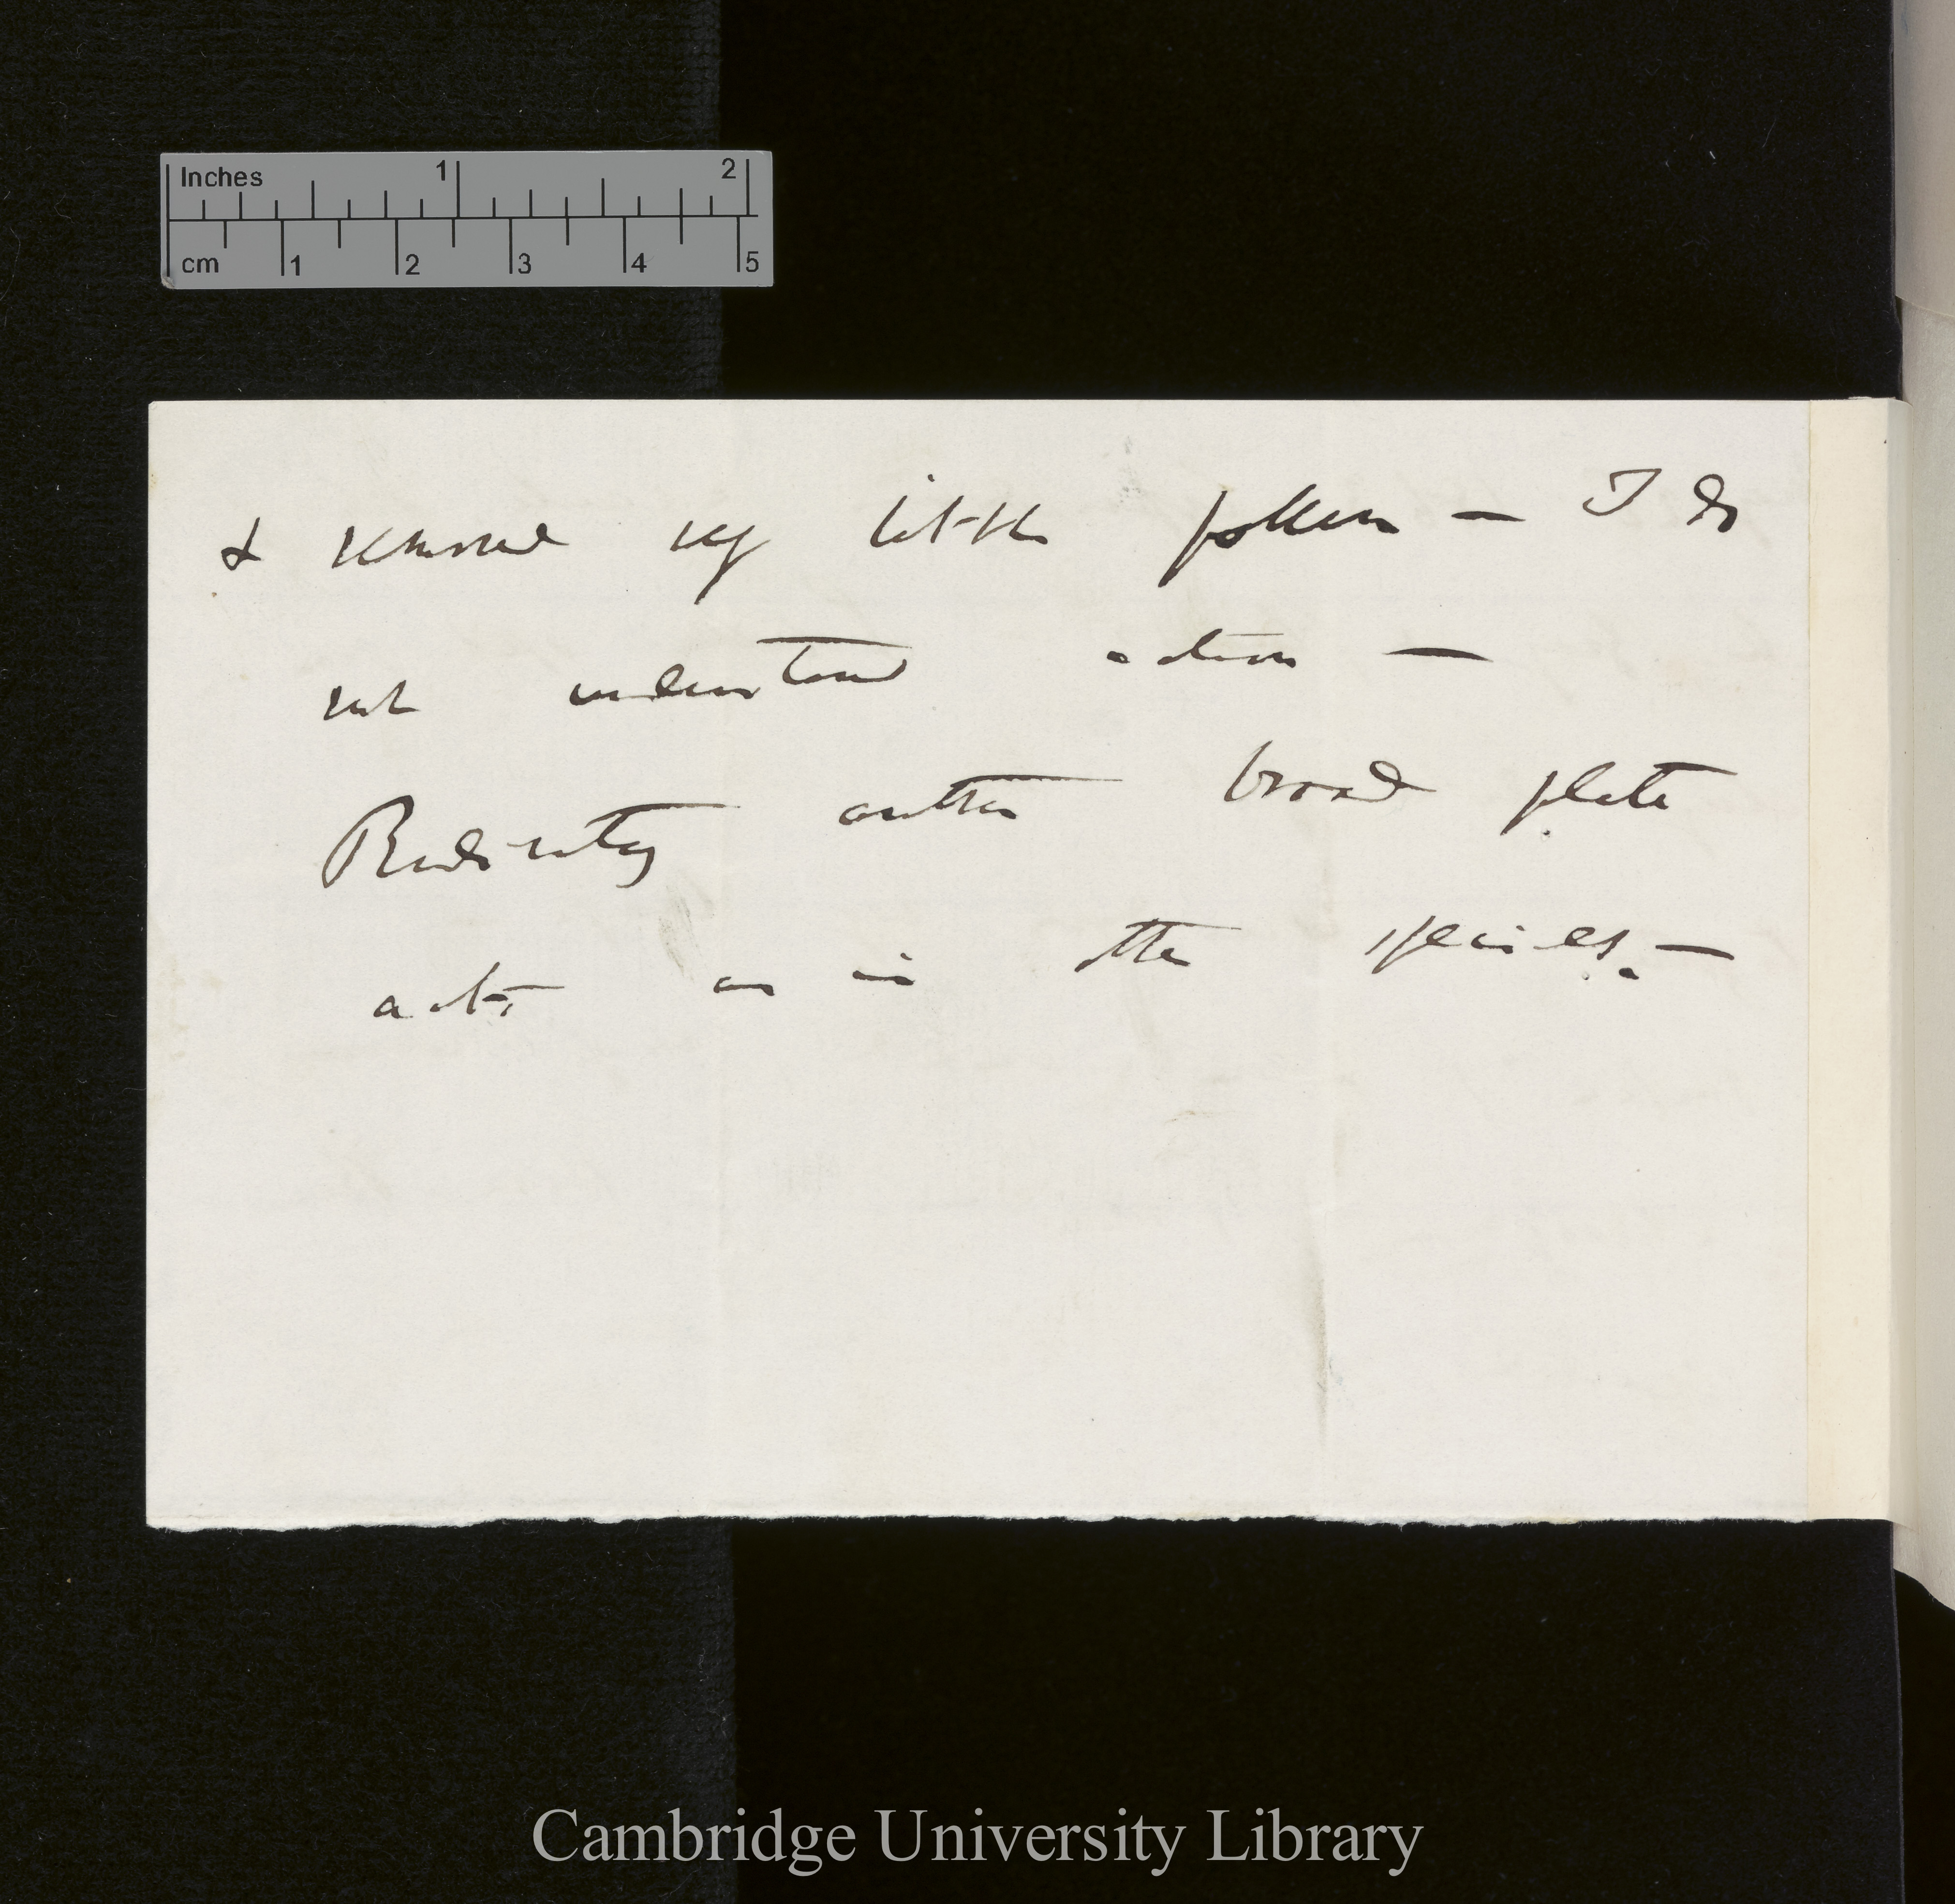 Inches 1 2
cm 1 2 3 4 5
& removed very little pollen — I do
not understand action —
Rudimentary anther broad plate
acts as in other species. —
Cambridge University Library